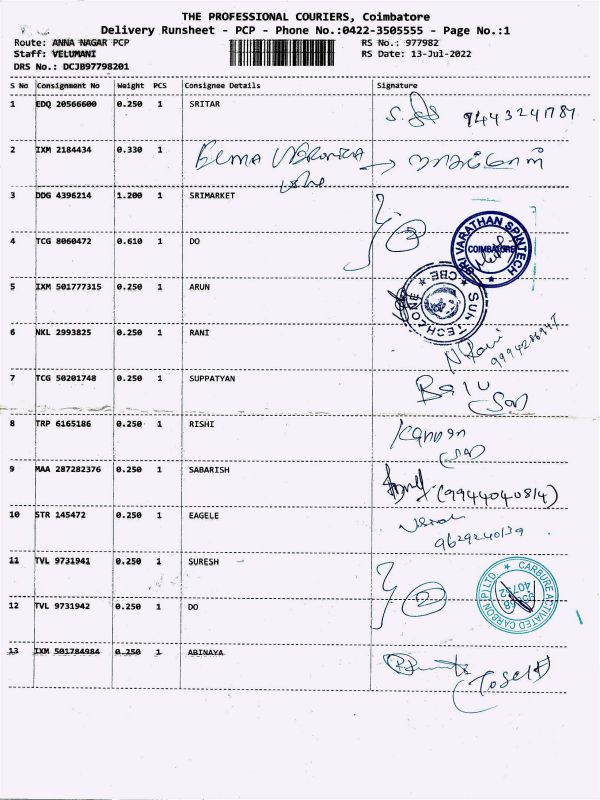 THE PROFESSIONAL COURIERS, Coimbatore
Delivery Runsheet - PCP - Phone No.:0422-3505555 - Page No.:1
Route: ANNA NAGAR PCP RS No.: 977982
Staff: VELUMANI RS Date: 13-Jul-2022
DRS No.: DCJB97798201
S No Consignment No Weight PCS Consignee Details Signature
1 EDQ 20566600 0.250 1 SRITAR
2 IXM 2184434 0.330 1
3 DDG 4396214 1.200 1 SRIMARKET
2
SRI VARATHAN SPINTECH
COIMBATORE
4 TCG 8060472 0.610 1 DO
SUN TECHZONE CBE
5 IXM 501777315 0.250 1 ARUN
6 NKL 2993825 0.250 1 RANI
N Rani
7 TCG 50201748 0.250 1 SUPPATYAN
Balu
8 TRP 6165186 0.250 1 RISHI
Kannan
9 MAA 287282376 0.250 1 SABARISH
(9944040814)
10 STR 145472 0.250 1 EAGELE
11 TVL 9731941 0.250 1 SURESH
2
CARBURE ACTIVATED CARBON P LTD.
12 TVL 9731942 0.250 1 DO
13 IXM 501784984 0.250 1 ABINAYA